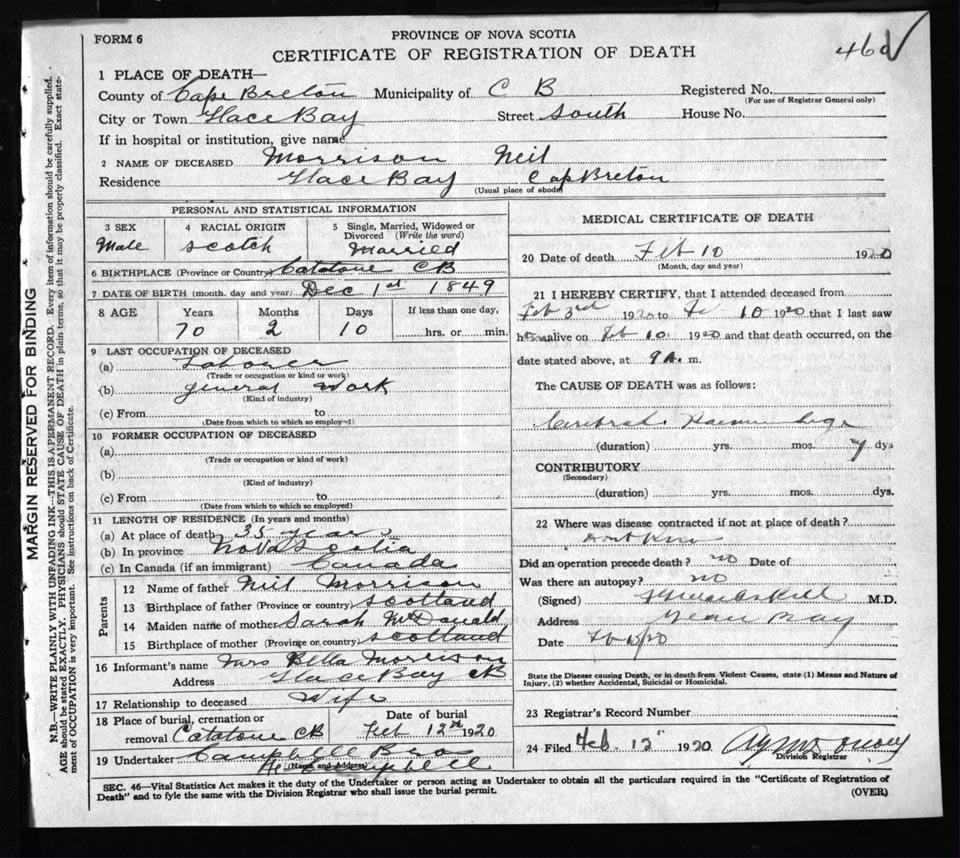 FORM 6
PROVINCE OF NOVA SCOTIA
CERTIFICATE OF REGISTRATION OF DEATH
460
1 PLACE OF DEATH—
County of Cape Breton Municipality of C B Registered No.
(For use of Registrar General only)
City or Town Glace Bay Street South House No.
If in hospital or institution, give name
2 NAME OF DECEASED Morrison Neil
Residence Glace Bay Cap Breton
(Usual place of abode)
PERSONAL AND STATISTICAL INFORMATION
3 SEX 4 RACIAL ORIGIN 5 Single, Married, Widowed or Divorced (Write the word)
Male Scotch Married
6 BIRTHPLACE (Province or Country) Catalone CB
7 DATE OF BIRTH (month, day and year) Dec 1st 1849
8 AGE Years Months Days If less than one day,
70 2 10 hrs. or min.
9 LAST OCCUPATION OF DECEASED
(a) Labourer
(Trade or occupation or kind or work)
(b) general work
(Kind of industry)
(c) From to
(Date from which to which so employed)
10 FORMER OCCUPATION OF DECEASED
(a)
(Trade or occupation or kind of work)
(b)
(Kind of industry)
(c) From to
(Date from which to which so employed)
11 LENGTH OF RESIDENCE (In years and months)
(a) At place of death 35 years
(b) In province Nova Scotia
(c) In Canada (if an immigrant) Canada
Parents
12 Name of father Neil Morrison
13 Birthplace of father (Province or country) Scotland
14 Maiden name of mother Sarah McDonald
15 Birthplace of mother (Province or country) Scotland
16 Informant's name Mrs Bella Morrison
Address Glace Bay CB
17 Relationship to deceased Wife
18 Place of burial, cremation or removal Catalone CB Date of burial Feb 12th 1920
19 Undertaker Campbell Bros
(Name and Address)
Campbell
MEDICAL CERTIFICATE OF DEATH
20 Date of death Feb 10 1920
(Month, day and year)
21 I HEREBY CERTIFY, that I attended deceased from
Feb 3rd 1920 to Feb 10 1920 that I last saw
him alive on Feb 10 1920 and that death occurred, on the
date stated above, at 9 A. m.
The CAUSE OF DEATH was as follows:
Cerebral Haemorrhage
(duration) yrs. mos. 7 dys
CONTRIBUTORY
(Secondary)
(duration) yrs. mos. dys.
22 Where was disease contracted if not at place of death?
dont know
Did an operation precede death? no Date of
Was there an autopsy? no
(Signed) M.D.
Address Bay
Date
State the Disease causing Death, or in death from Violent Causes, state (1) Means and Nature of Injury, (2) whether Accidental, Suicidal or Homicidal.
23 Registrar's Record Number
24 Filed Feb. 12 1920
Division Registrar
SEC. 46—Vital Statistics Act makes it the duty of the Undertaker or person acting as Undertaker to obtain all the particulars required in the "Certificate of Registration of
Death" and to fyle the same with the Division Registrar who shall issue the burial permit. (OVER)
MARGIN RESERVED FOR BINDING
N.B.—WRITE PLAINLY WITH UNFADING INK—THIS IS A PERMANENT RECORD. Every item of information should be carefully supplied.
AGE should be stated EXACTLY. PHYSICIANS should STATE CAUSE OF DEATH in plain terms, so that it may be properly classified. Exact state-
ment of OCCUPATION is very important. See instructions on back of Certificate.